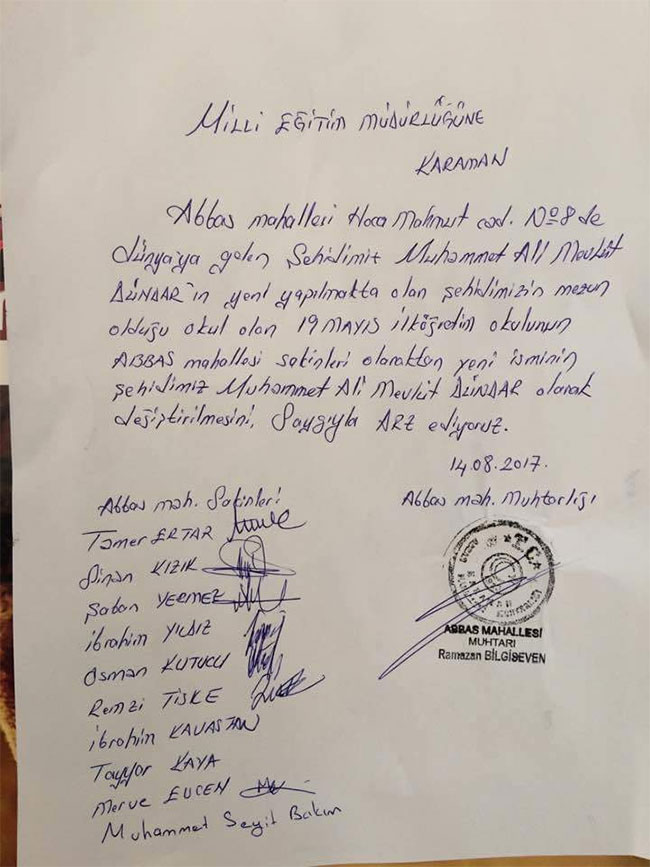 MİLLİ EĞİTİM MÜDÜRLÜĞÜNE
KARAMAN
Abbas mahallesi Hoca Mahmut cad. No8 de
dünya'ya gelen Şehidimiz Muhammet Ali Mevlüt
DÜNDAR'ın yeni yapılmakta olan şehidimizin mezun
olduğu okul olan 19 MAYIS ilköğretim okulunun
ABBAS mahallesi sakinleri olaraktan yeni isminin
şehidimiz Muhammet Ali Mevlüt DÜNDAR olarak
değiştirilmesini, Saygıyla ARZ ediyoruz.
14.08.2017.
Abbas mah. Muhtarlığı
Abbas mah. Sakinleri
Tamer ERTAR
Sinan KIZIK
Şaban YERMEZ
ibrahim YILDIZ
Osman KUTUCU
Remzi TİSKE
ibrahim KAVASTAN
Tayyar KAYA
Merve EUCEN
Muhammet Seyit Bakım
T.C.
ABBAS MAHALLESİ
MUHTARI
Ramazan BİLGİSEVEN